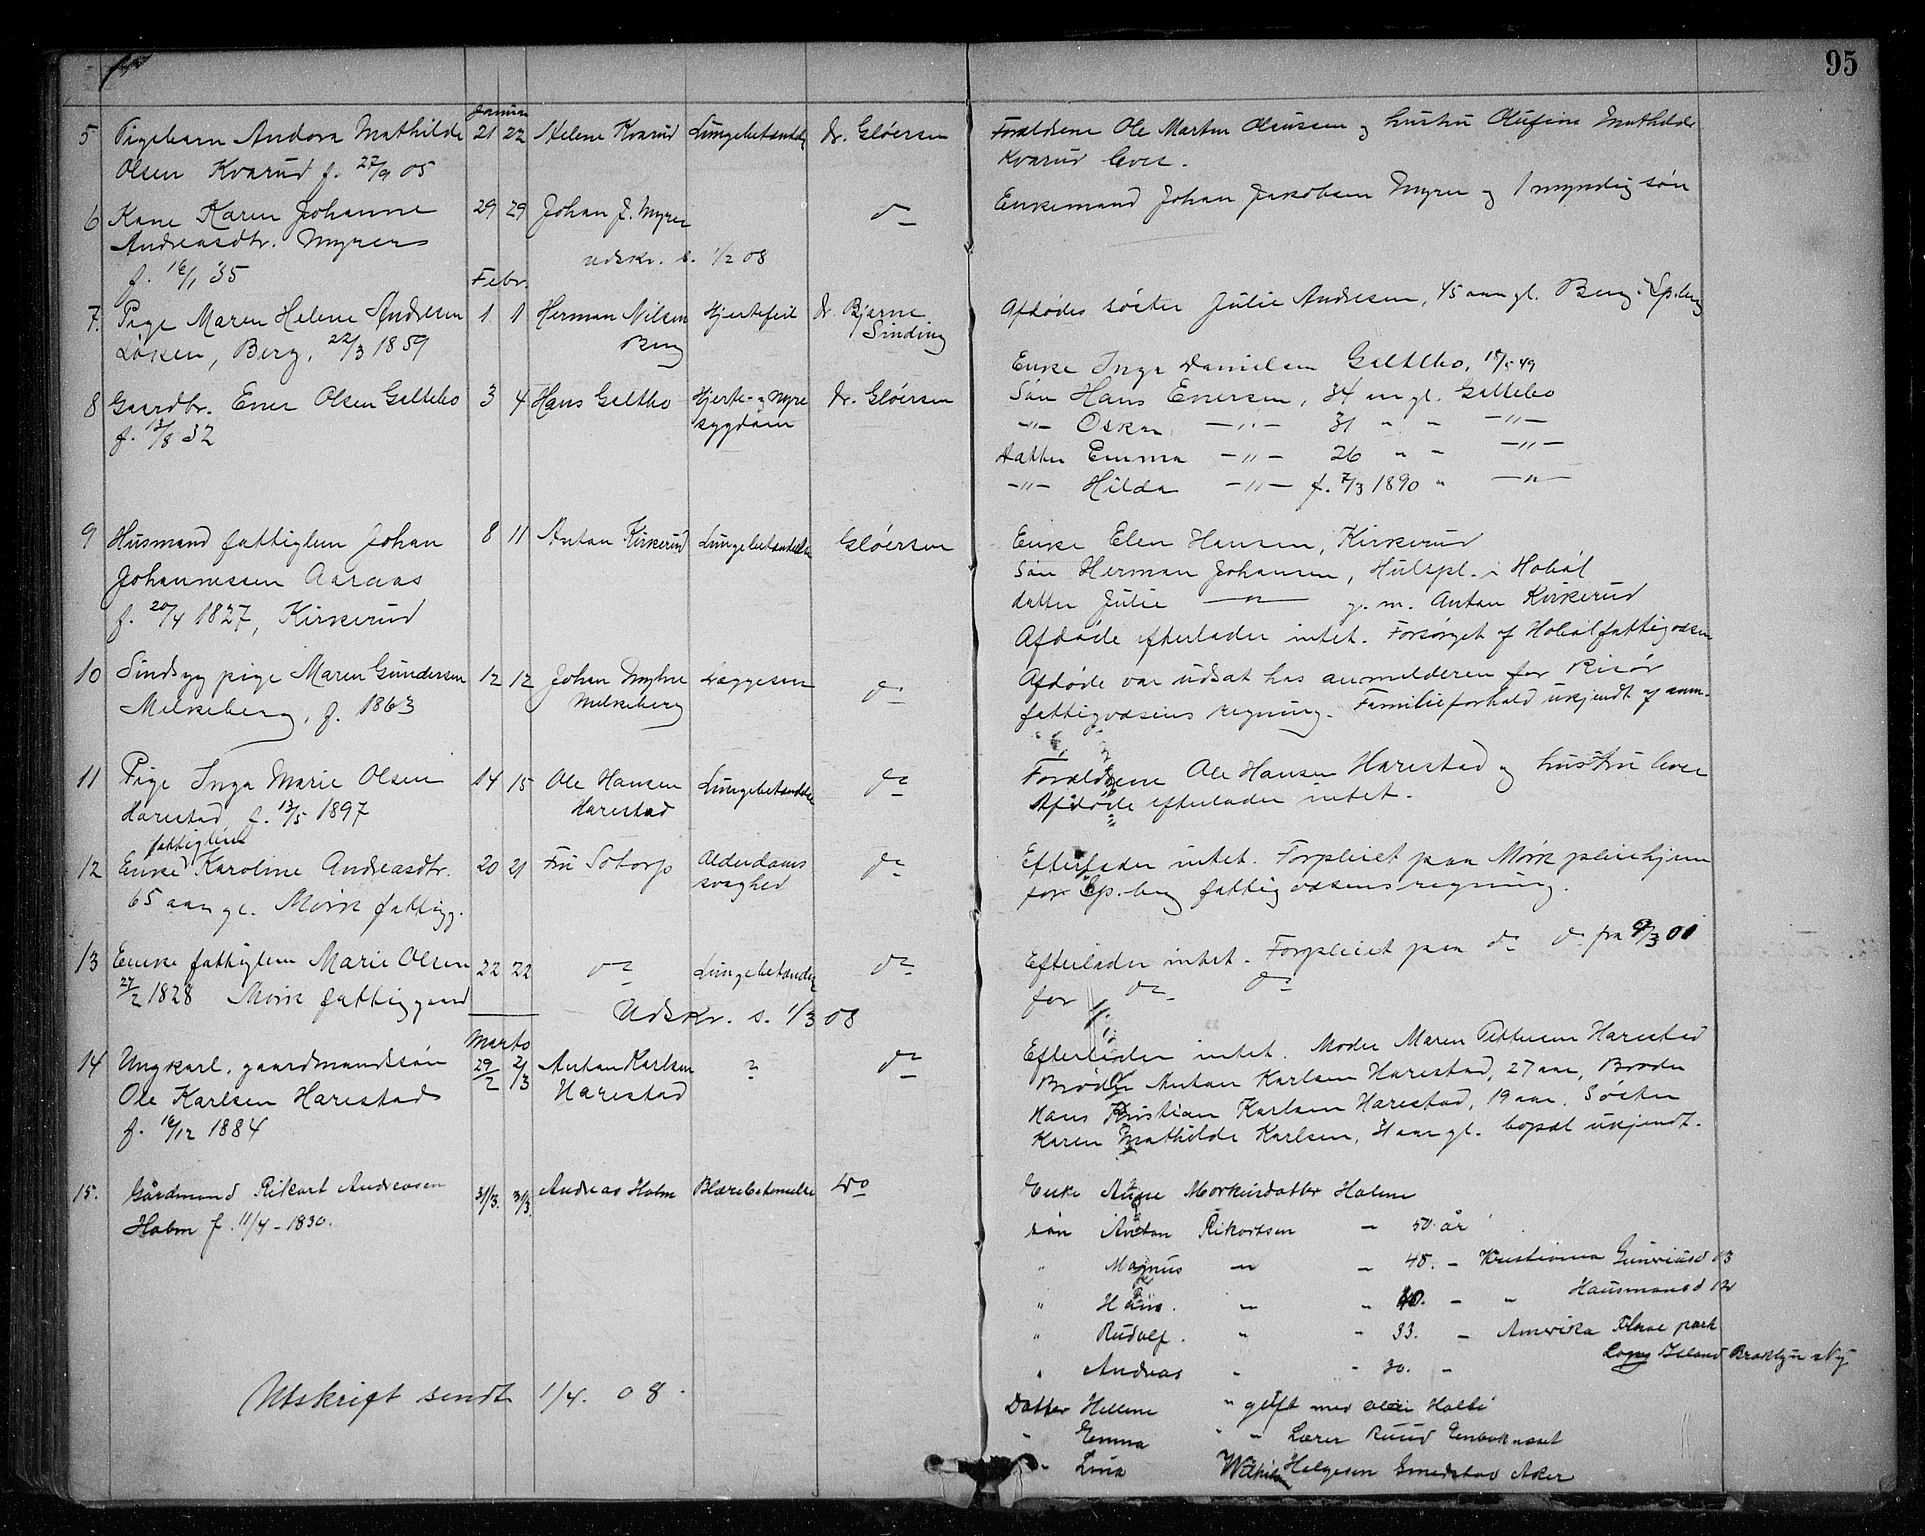 95
Januar
5 Pigebarn Andora Mathilde 21 22 Helene Kvarud Lungebetændelse Dr. Gløersen Forældrene Ole Martin Olaussen og hustru Olufine Mathilde
Olsen Kvarud f. 27/9 05 Kvarud lever.
6 Kone Karen Johanne 29 29 Johan J. Myrer do Enkemand Johan Jakobsen Myrer og 1 myndig søn
Andreasdtr. Myrer
udskr. s. 1/2 08
f. 16/1 35
Febr.
7. Pige Maren Helene Andresen 1 1 Herman Nilsen Hjertefeil Dr. Bjarne Afdødes søster Julie Andresen, 45 aar gl. Berg. Sp.berg
Løken, Berg, 22/3 1859 Berg Sinding
Enke Inga Danielsen Galtebo, 15/5 49
8 Gaardbr. Ener Olsen Galtebo 3 4 Hans Galtbo Hjerte- og Nyre Dr. Gløersen Søn Hans Enersen, 34 aar gl. Galtebo
f. 13/8 32 sygdom -"- Oskar -"- 31 " " -"-
Datter Emma -"- 26 " " -"-
-"- Hilda -"- f. 7/3 1890 " -"-
9 Husmand fattiglem Johan 8 11 Anton Kirkerud Lungebetændelse Gløersen Enke Elen Hansen, Kirkerud
Johannessen Aaraas Søn Herman Johansen, Hulspl. i Hobøl
f. 20/4 1827, Kirkerud datter Julie -"- g. m. Anton Kirkerud
Afdøde efterlader intet. Forsørget af Hobøl fattigvæsen
10 Sindsyg pige Maren Gundersen 12 12 Johan Myhre do Afdøde var udsat hos anmelderen for Risør
Melkeberg, f. 1863 Melkeberg fattigvæsens regning. Familieforhold ukjendt af anm.
11 Pige Inga Marie Olsen 14 15 Ole Hansen Lungebetændelse do Forældrene Ole Hansen Harestad og hustru lever
Harestad f. 13/5 1897 Harestad Afdøde efterlader intet.
fattiglem
12 Enke Karoline Andreasdtr. 20 21 Fru Sotorp Alderdoms do Efterlader intet. Forpleiet paa Mørk pleiehjem
65 aar gl. Mørk fattigg. svaghed for Sp.berg fattigvæsens regning.
13 Enke fattiglem Marie Olsen 22 22 do Lungebetændelse do Efterlader intet. Forpleiet paa do do fra 9/3 01
27/2 1828 Mørk fattiggaard for do do
Udskr. s. 1/3 08
Marts
14 Ungkarl, gaardmandssøn 29/2 2/3 Anton Karlsen ? do Efterlader intet. Moder Maren Pettersen Harestad
Ole Karlsen Harestad Harestad Broder Anton Karlsen Harestad, 27 aar, Broder
f. 16/12 1884 Hans Kristian Karlsen Harestad, 19 aar. Søster
Karen Mathilde Karlsen, aar gl. bopæl ukjendt.
15. Gårdmand Rikart Andreasen 31/3. 31/3. Andreas Holm Blærebetennelse Do Enke Anne Morkusdatter Holm
Holm f. 11/4 - 1830. søn Anton Rikartsen - 50 år
" Magnus -"- - 48. - Kristiania 13
" Hans. -"- " 40. - " Hausmansd 12
" Rudolf. " " 33. - Amerika park
Long Island Brooklyn Ny
" Andreas " " 30. -
Utskrift sendt 1/4. 08.
Datter Hellene " gift med Ole Holli
" Emma " " Lærer Ruud Enebaknæset
" Lina Wilhelm Helgesen Smedstad Aker